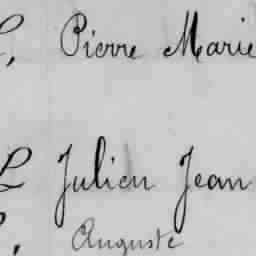 L, Pierre Marie
L Julien Jean
, Auguste